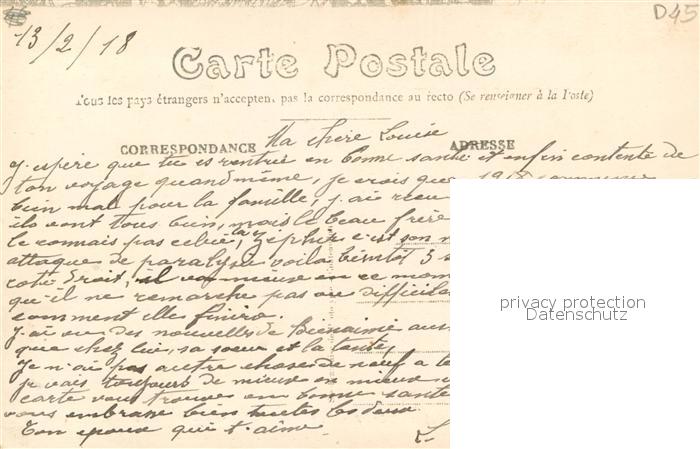 D45
13/2/18
Carte Postale
Tous les pays étrangers n'acceptent pas la correspondance au recto (Se renseigner à la Poste)
CORRESPONDANCE ADRESSE
Ma chère Louise
j'espère que tu es rentrée en bonne santé et enfin contente de
ton voyage quand même, je crois que 1918 commence
bien mal pour la famille, j'ai reçu
ils vont tous bien, mais le beau frère
le connais pas celui là, Zéphir c'est son
attaque de paralysie voilà bientôt 3
coté droit, il va mieux en ce mom
qu'il ne remarche pas ou difficile
comment elle finira.
J'ai eu des nouvelles de Bienaimé aus
que chez lui, sa soeur et la tante
Je n'ai pas autre chose de neuf à te
je vais toujours de mieux en mieux
carte vous trouves en bonne santé
vous embrasse bien toutes les deux
Ton epoux qui t'aime
L
privacy protection
Datenschutz